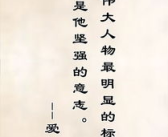 伟大人物最明显的标
是他坚强的意志。
——爱